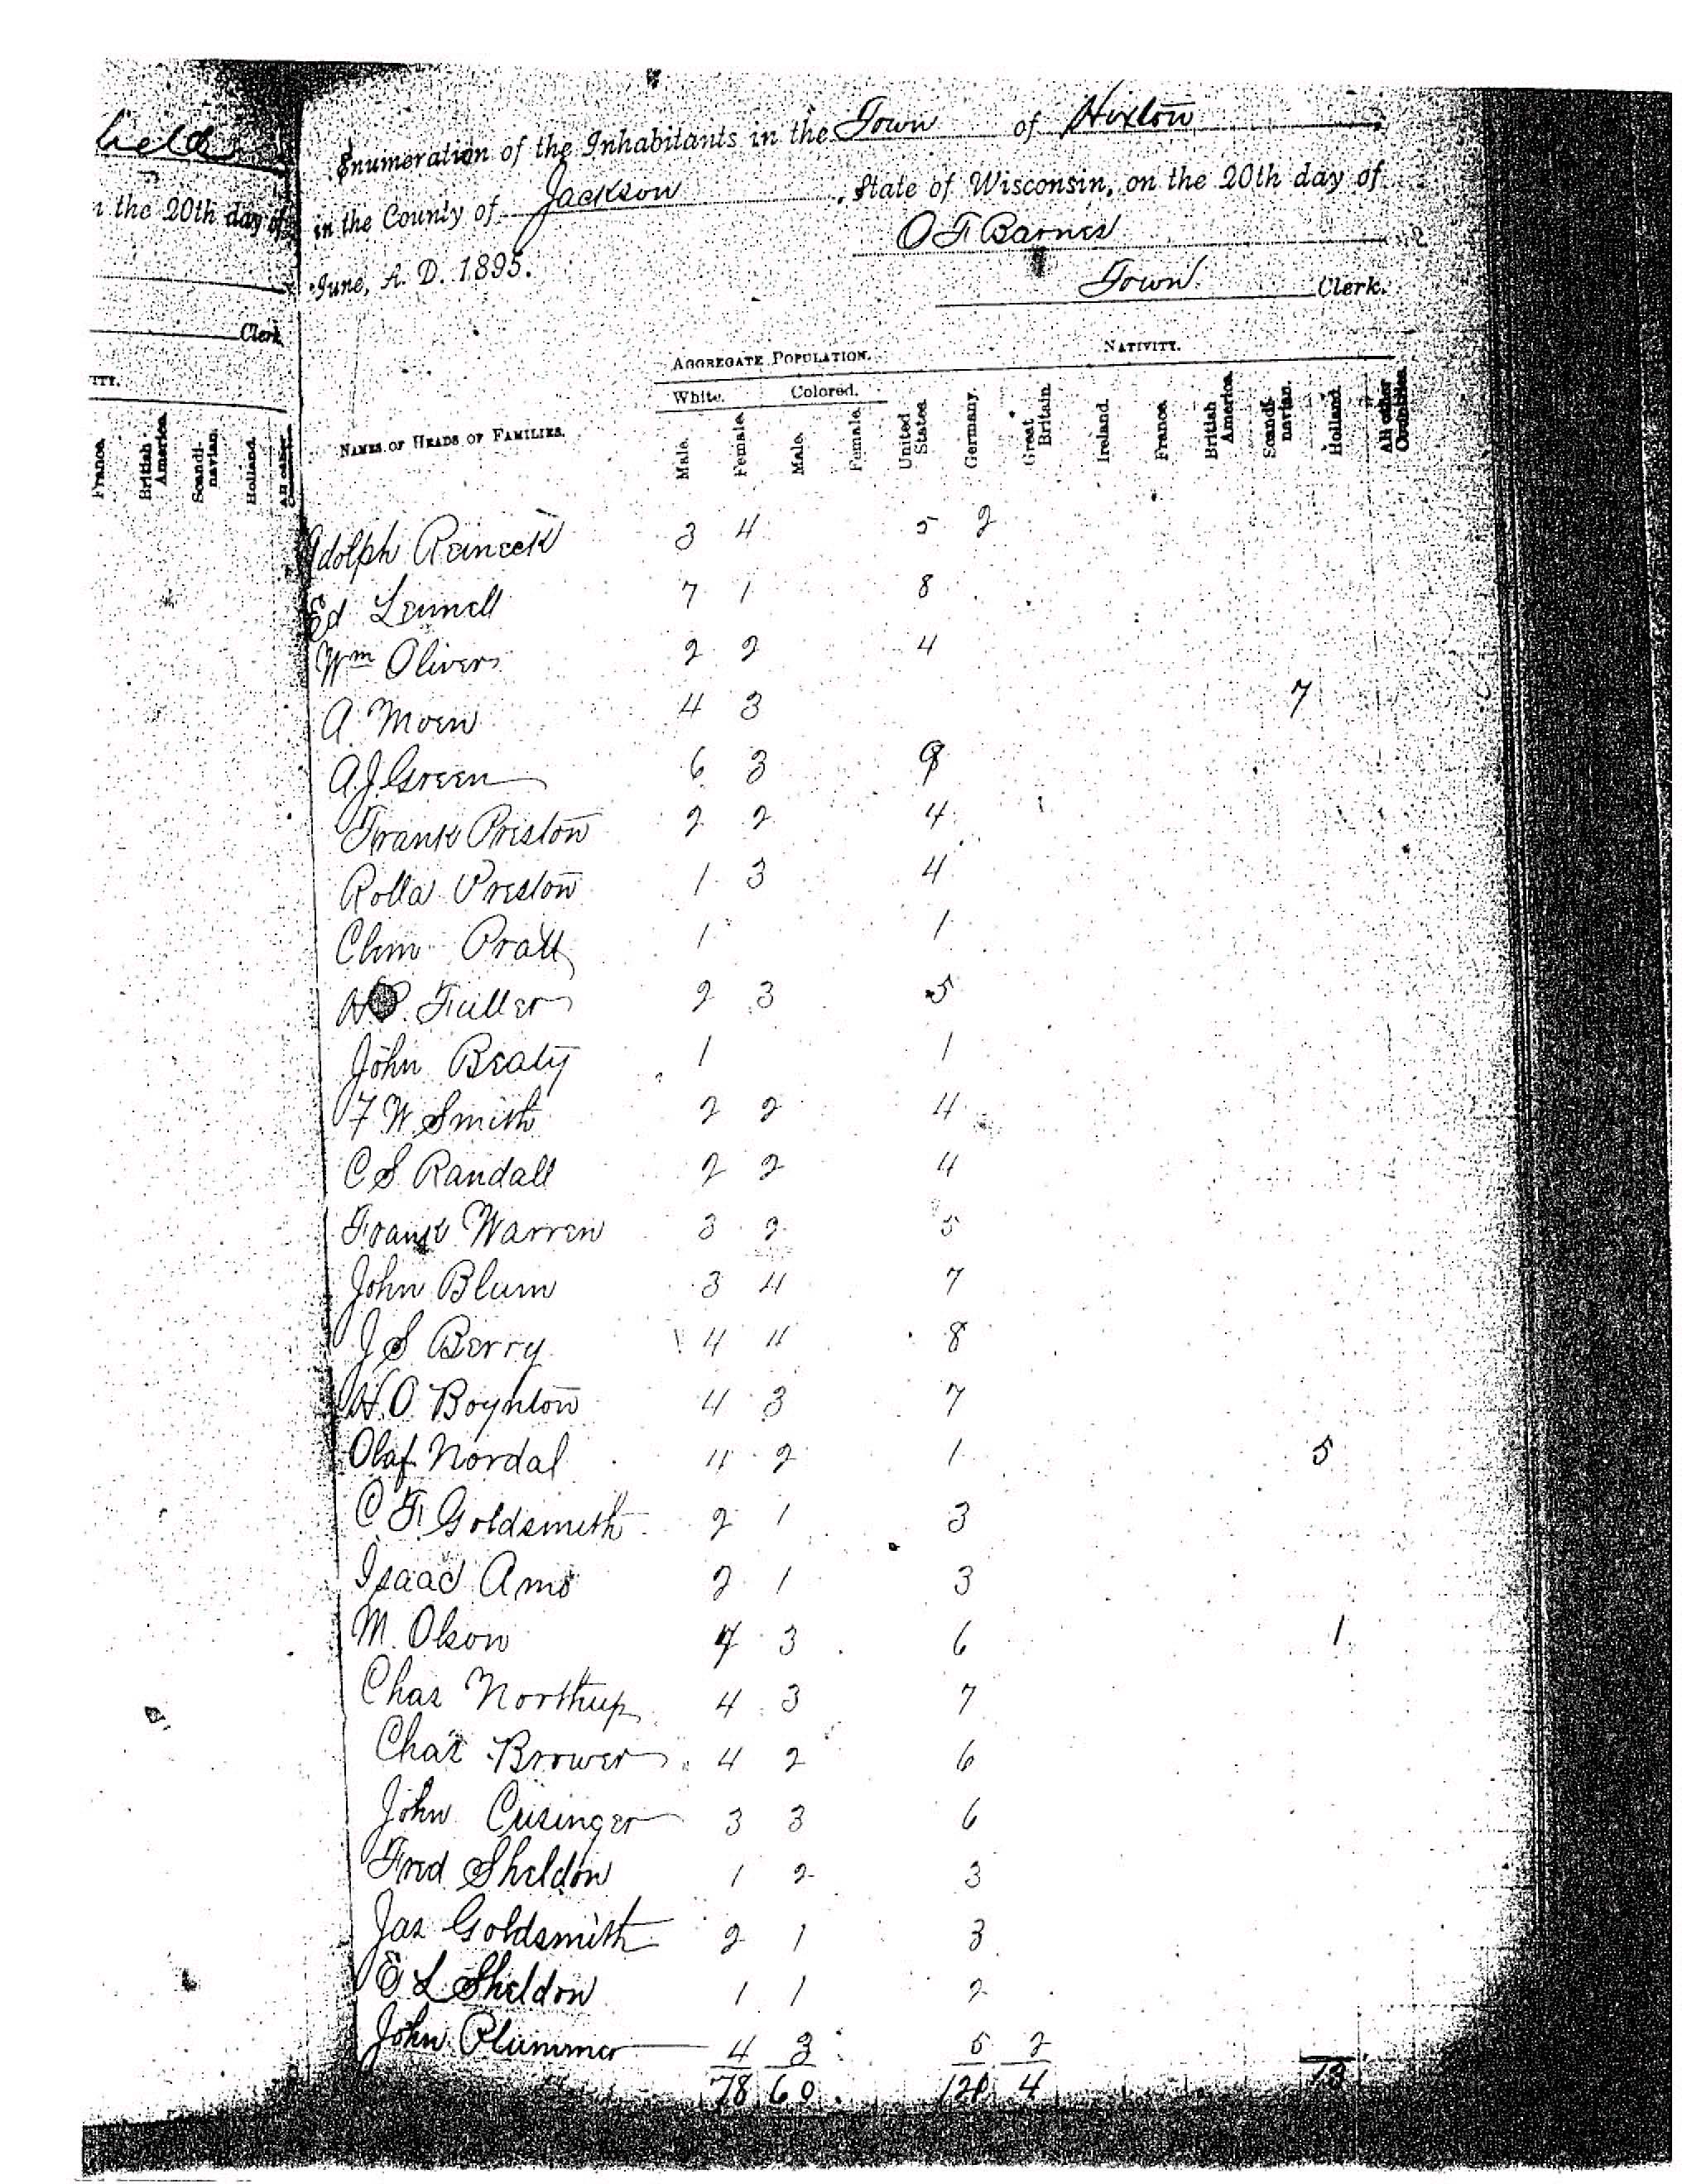 held
n the 20th day of
Clerk
ITY.
France.
British America.
Scandi-navian.
Holland.
All other
Enumeration of the Inhabitants in the Town of Hixton,
in the County of Jackson, State of Wisconsin, on the 20th day of
June, A. D. 1895.
O F Barnes
Town Clerk.
AGGREGATE POPULATION. NATIVITY.
White. Colored.
NAMES OF HEADS OF FAMILIES. Male. Female. Male. Female. United States. Germany. Great Britain. Ireland. France. British America. Scandi-navian. Holland. All other Countries.
Adolph Reineck 3 4 5 2
Ed Lennell 7 1 8
Wm Oliver 2 2 4
A. Moen 4 3 7
A. J. Green 6 3 9
Frank Preston 2 2 4
Rolla Preston 1 3 4
Clem Pratt 1 1
Fuller 2 3 5
John Beaty 1 1
F W Smith 2 2 4
C S Randall 2 2 4
Frank Warren 3 2 5
John Blum 3 4 7
J S Berry 4 4 8
H. O. Boynton 4 3 7
Olaf Nordal 4 2 1 5
C F. Goldsmith 2 1 3
Isaac Ams 2 1 3
M. Olson 4 3 6 1
Chas Northup 4 3 7
Chas Brower 4 2 6
John Cusinger 3 3 6
Fred Sheldon 1 2 3
Jas Goldsmith 2 1 3
E L Sheldon 1 1 2
John Plummer 4 3 5 2
78 60 121 4 13